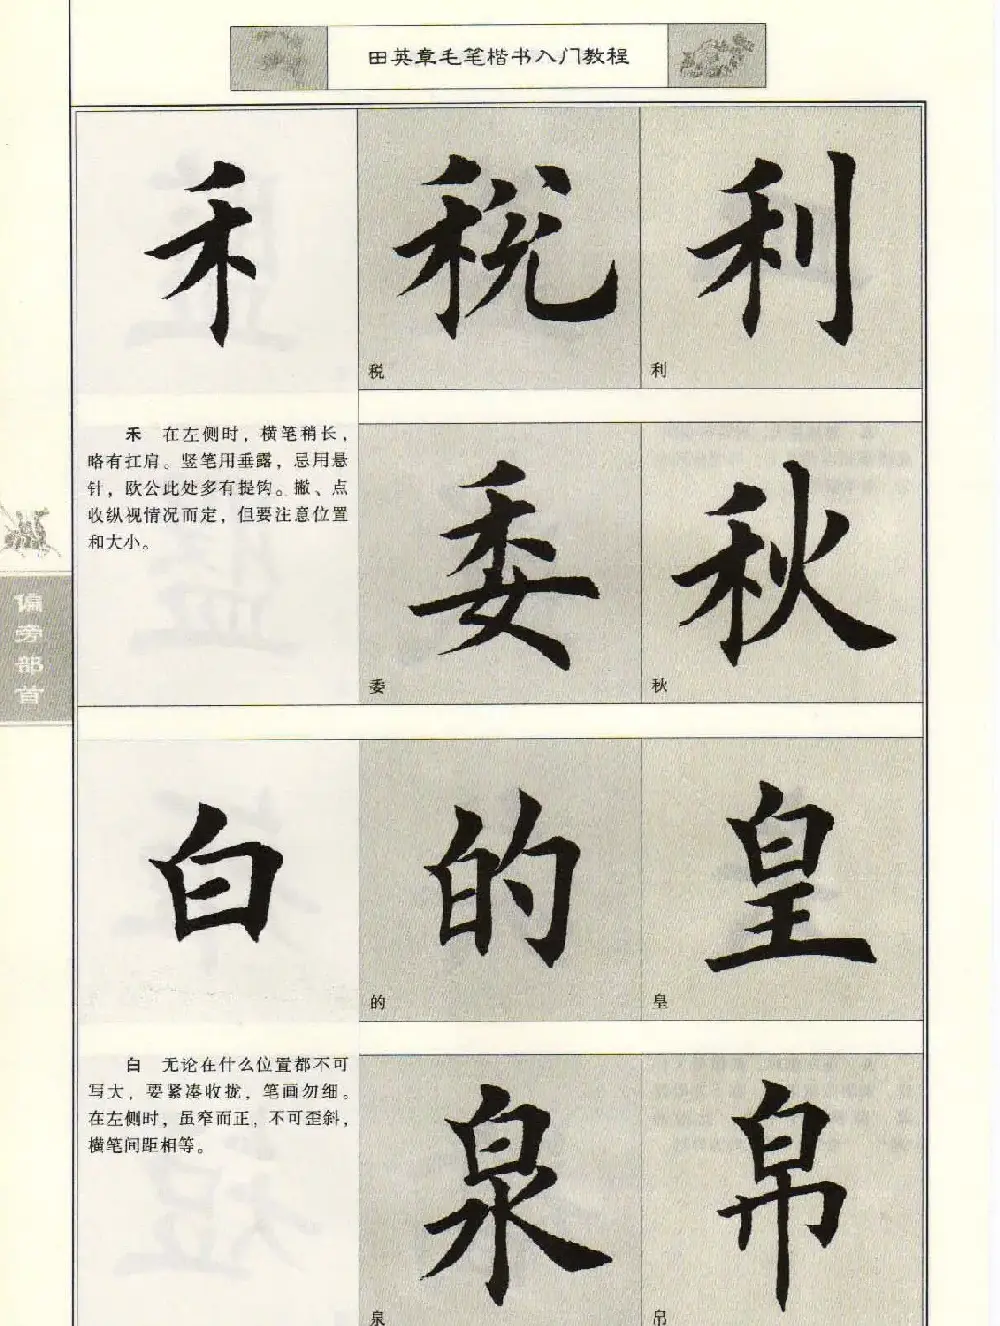 田英章毛笔楷书入门教程
禾
税
利
税
利
禾 在左侧时，横笔稍长，
略有扛肩。竖笔用垂露，忌用悬
针，欧公此处多有提钩。撇、点
收纵视情况而定，但要注意位置
和大小。
委
秋
委
秋
偏旁部首
白
的
皇
的
皇
白 无论在什么位置都不可
写大，要紧凑收拢，笔画勿细。
在左侧时，虽窄而正，不可歪斜，
横笔间距相等。
泉
帛
泉
帛